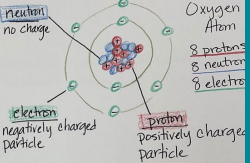 neutron
no charge
Oxygen
Atom
8 protons
8 neutron
8 electro
electron
negatively charged
particle
proton
positively charged
particle